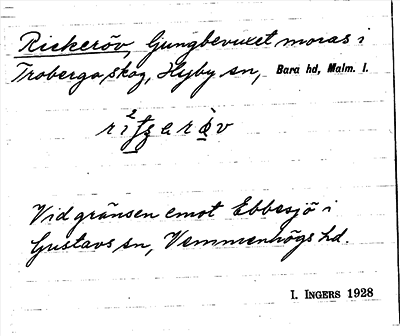 Rickeröv, ljungbevuxet moras i
Troberga skog, Hyby sn, Bara hd, Malm. l.
Vid gränsen emot Ebbesjö i
Gustavs sn, Vemmenhögs hd.
I. INGERS 1928